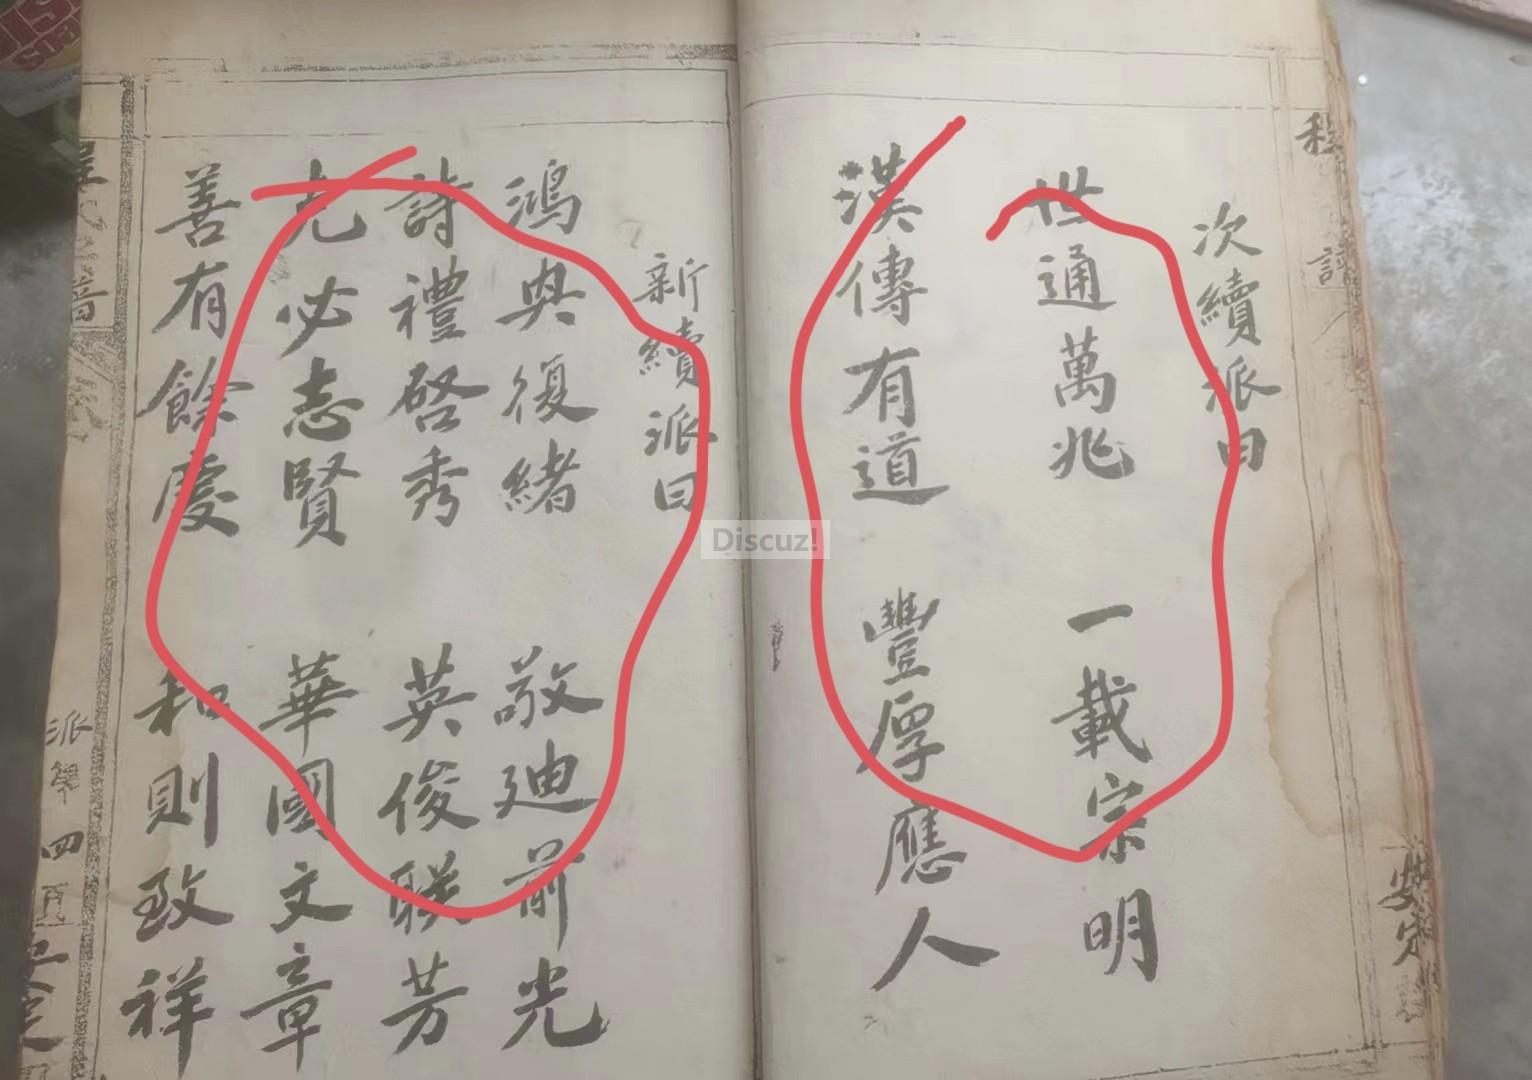 次續派曰
世通萬兆 一載宗明
漢傳有道 豐厚應人
新續派曰
鴻興復緒 敬迪前光
詩禮啓秀 英俊聯芳
克必志賢 華國文章
善有餘慶 和則致祥
派
四
Discuz!